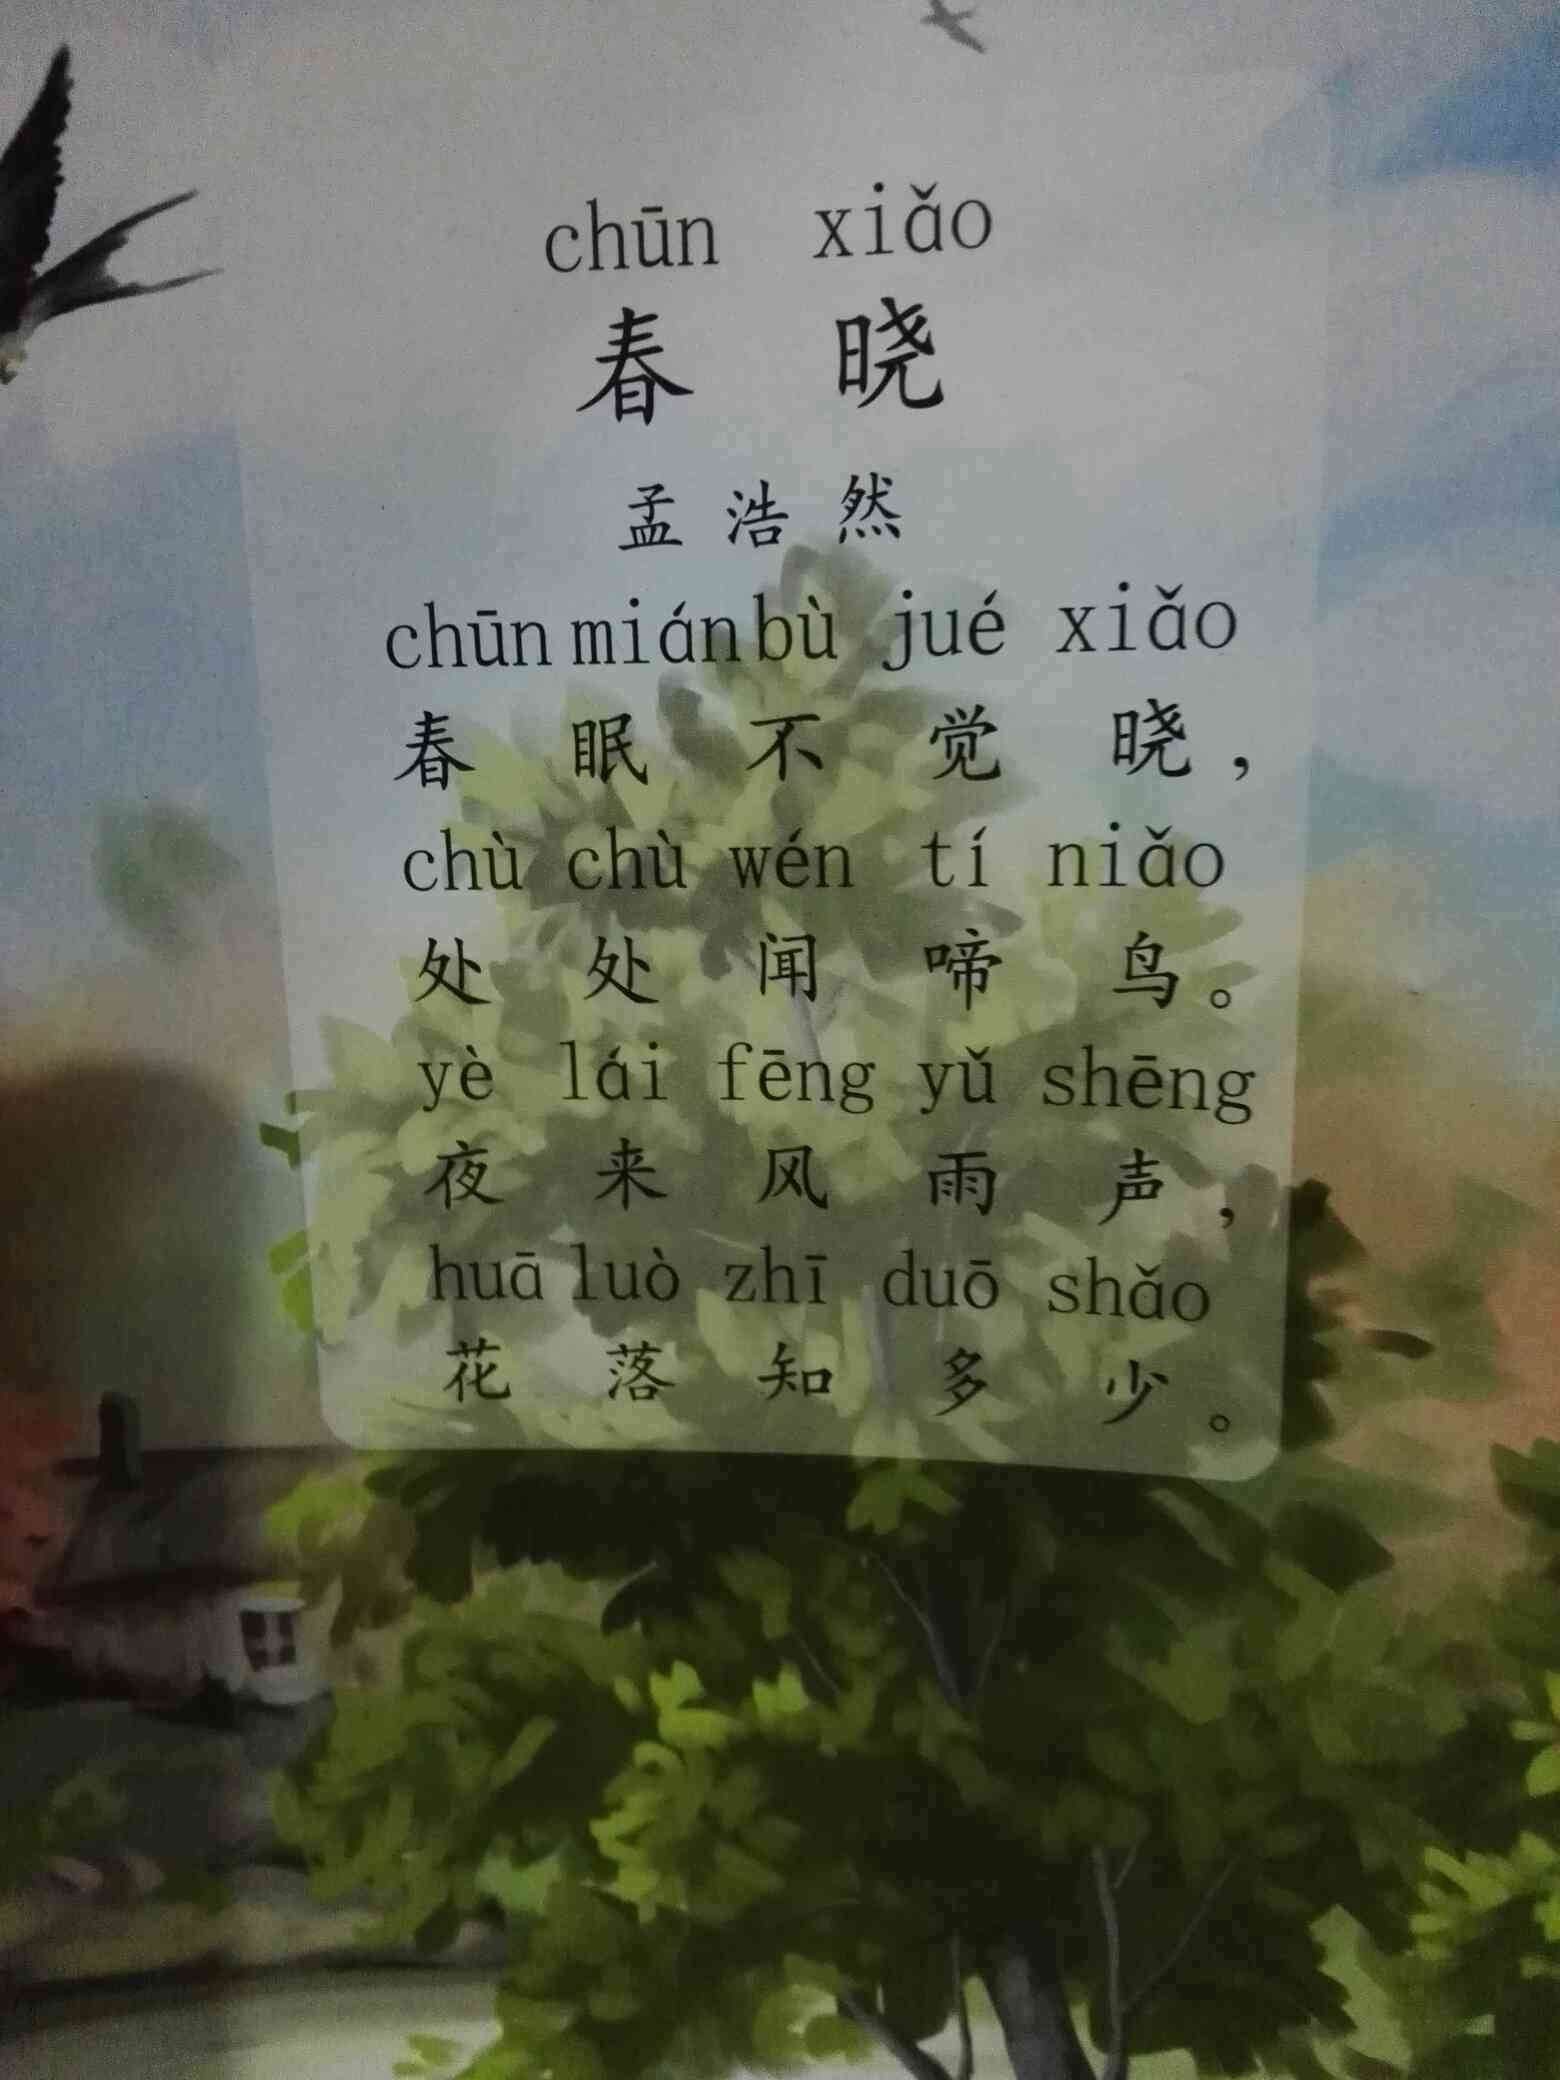 chūn xiǎo
春晓
孟浩然
chūn mián bù jué xiǎo
春眠不觉晓，
chù chù wén tí niǎo
处处闻啼鸟。
yè lái fēng yǔ shēng
夜来风雨声，
huā luò zhī duō shǎo
花落知多少。